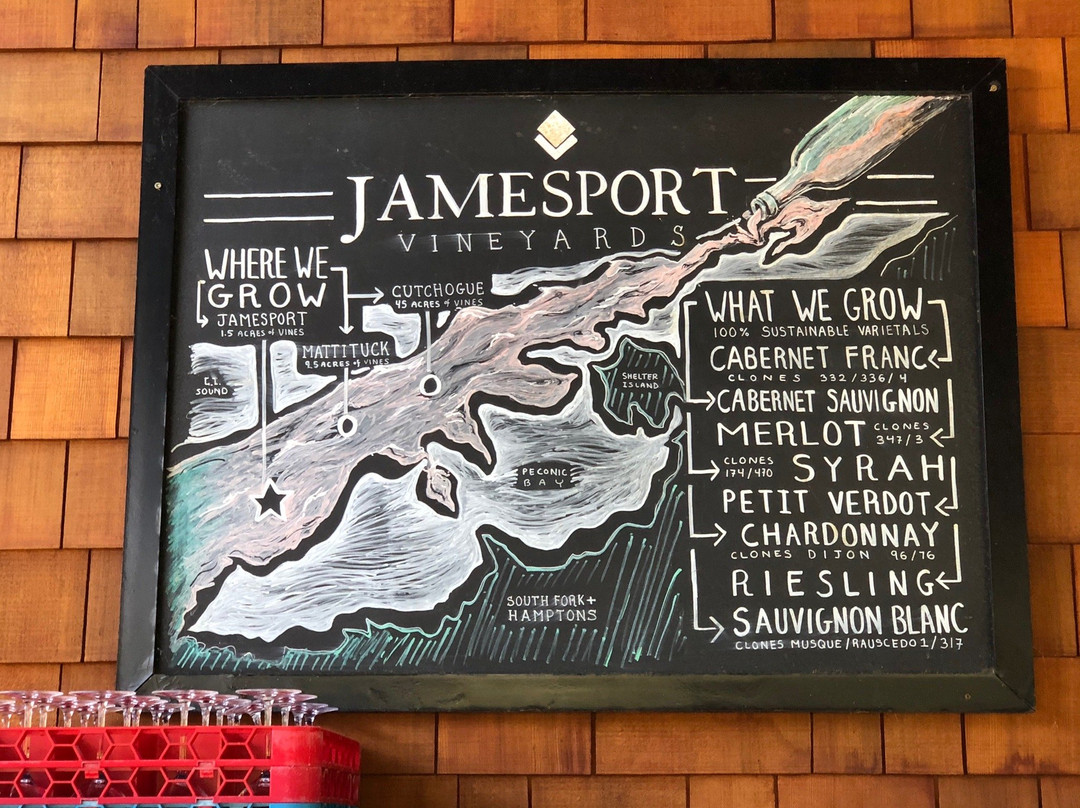 JAMESPORT
VINEYARDS
WHERE WE
GROW
JAMESPORT
1.5 ACRES of VINES
CUTCHOGUE
45 ACRES of VINES
MATTITUCK
9.5 ACRES of VINES
L.I.
SOUND
SHELTER
ISLAND
PECONIC
BAY
SOUTH FORK+
HAMPTONS
WHAT WE GROW
100% SUSTAINABLE VARIETALS
CABERNET FRANC
CLONES 332/336/4
CABERNET SAUVIGNON
MERLOT CLONES
347/3
CLONES
174/470 SYRAH
PETIT VERDOT
CHARDONNAY
CLONES DIJON 96/76
RIESLING
SAUVIGNON BLANC
CLONES MUSQUE/RAUSCEDO 1/317